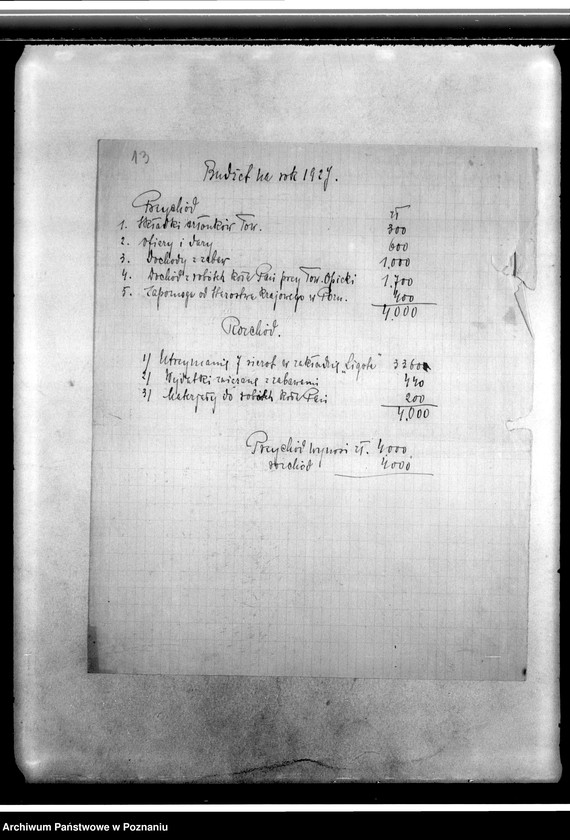 13
Budżet na rok 1927.
Przychód
zł
1. Składki członków Tow. 300
2. Ofiary i dary 600
3. Dochody z zabaw 1,000
4. Dochód z robótek koła Pań przy Tow. Opieki 1,700
5. Zapomoga od Starostwa Krajowego w Pozn. 400
4,000
Rozchód.
1) Utrzymanie 7 sierot w zakładzie „Ligota" 3360
2) Wydatki związane z zabawami 440
3) Materjały do robótek koła Pań 200
4,000
Przychód wynosi zł. 4,000,
rozchód 4000
Archiwum Państwowe w Poznaniu